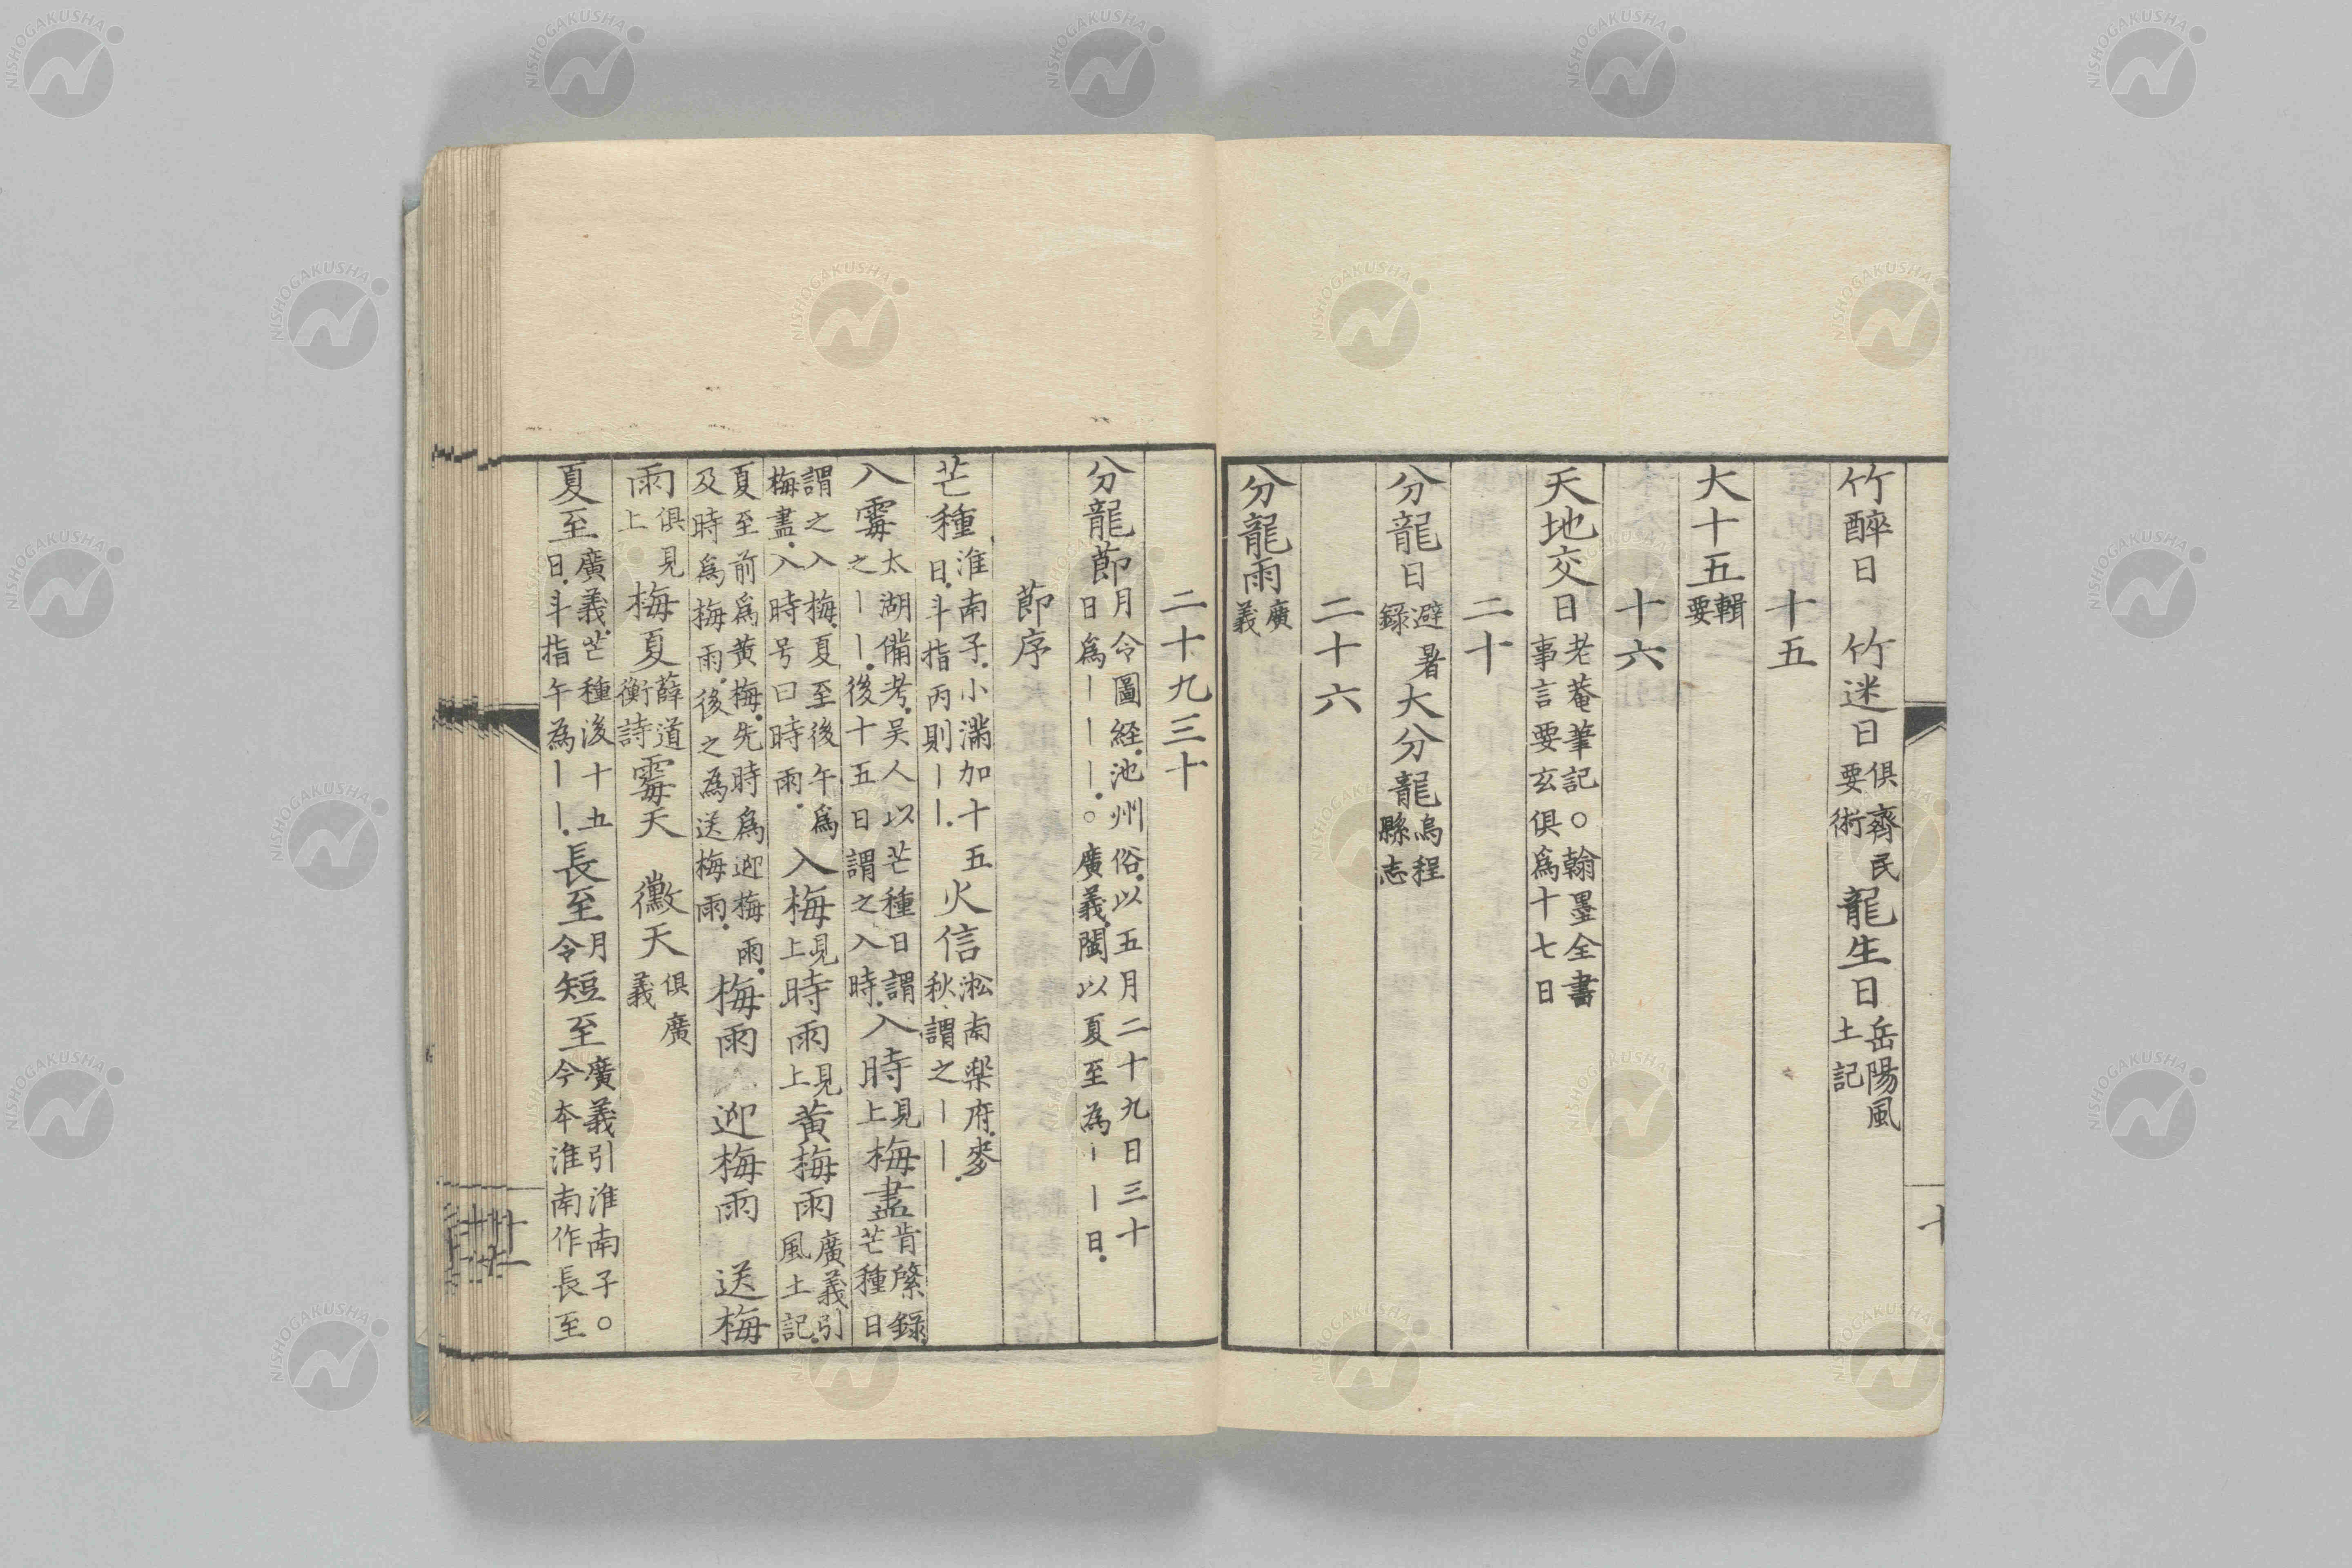 竹醉日　竹迷日俱齊民要術龍生日岳陽風土記
十五
大十五輯要
十六
天地交日老菴筆記○翰墨全書事言要玄俱爲十七日
二十
分龍日避暑録大分龍烏程縣志
二十六
分龍雨廣義
二十九三十
分龍節月令圖経.池州俗.以五月二十九日三十日爲｜｜｜.○廣義.閩以夏至為｜｜日.
節序
芒種淮南子.小滿加十五日.斗指丙則｜｜.火信淞南楽府.麥秋.謂之｜｜.
入霉太湖備考.吴人以芒種日謂之｜｜.後十五日謂之入時.入時見上梅盡肯綮録.芒種日
謂之入梅.夏至後午爲梅盡.入時号曰時雨.入梅見上時雨見上黄梅雨廣義引風土記.
夏至前爲黄梅.先時爲迎梅雨.及時爲梅雨.後之為送梅雨.梅雨　迎梅雨　送梅
雨俱見上梅夏薛道衡詩霉天　黴天俱廣義
夏至廣義.芒種後十五日.斗指午為｜｜.長至月令短至廣義引淮南子○今本淮南作長至
十
NISHOGAKUSHA